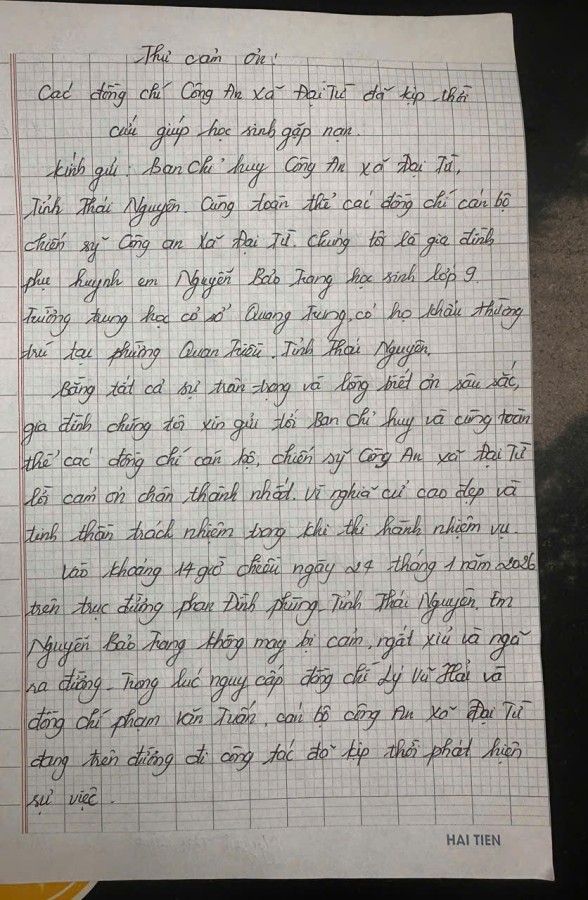 Thư cảm ơn!
Các đồng chí Công An xã Đại Từ đã kịp thời
cứu giúp học sinh gặp nạn.
Kính gửi: Ban chỉ huy Công An xã Đại Từ,
Tỉnh Thái Nguyên. Cùng toàn thể các đồng chí cán bộ
chiến sỹ Công an xã Đại Từ. Chúng tôi là gia đình
phụ huynh em Nguyễn Bảo Trang học sinh lớp 9.
Trường trung học cơ sở Quang Trung, có hộ khẩu thường
trú tại phường Quan Triều, Tỉnh Thái Nguyên.
Bằng tất cả sự trân trọng và lòng biết ơn sâu sắc,
gia đình chúng tôi xin gửi tới Ban chỉ huy và cùng toàn
thể các đồng chí cán bộ, chiến sỹ Công An xã Đại Từ
lời cảm ơn chân thành nhất. Vì nghĩa cử cao đẹp và
tinh thần trách nhiệm trong khi thi hành nhiệm vụ.
Vào khoảng 14 giờ chiều ngày 24 tháng 1 năm 2026
trên trục đường phan Đình phùng. Tỉnh Thái Nguyên. Em
Nguyễn Bảo Trang không may bị cảm, ngất xỉu và ngã
ra đường. Trong lúc nguy cấp đồng chí Lý Vũ Hải và
đồng chí phạm văn Tuấn, cán bộ công An xã Đại Từ
đang trên đường đi công tác đã kịp thời phát hiện
sự việc.
HAI TIEN